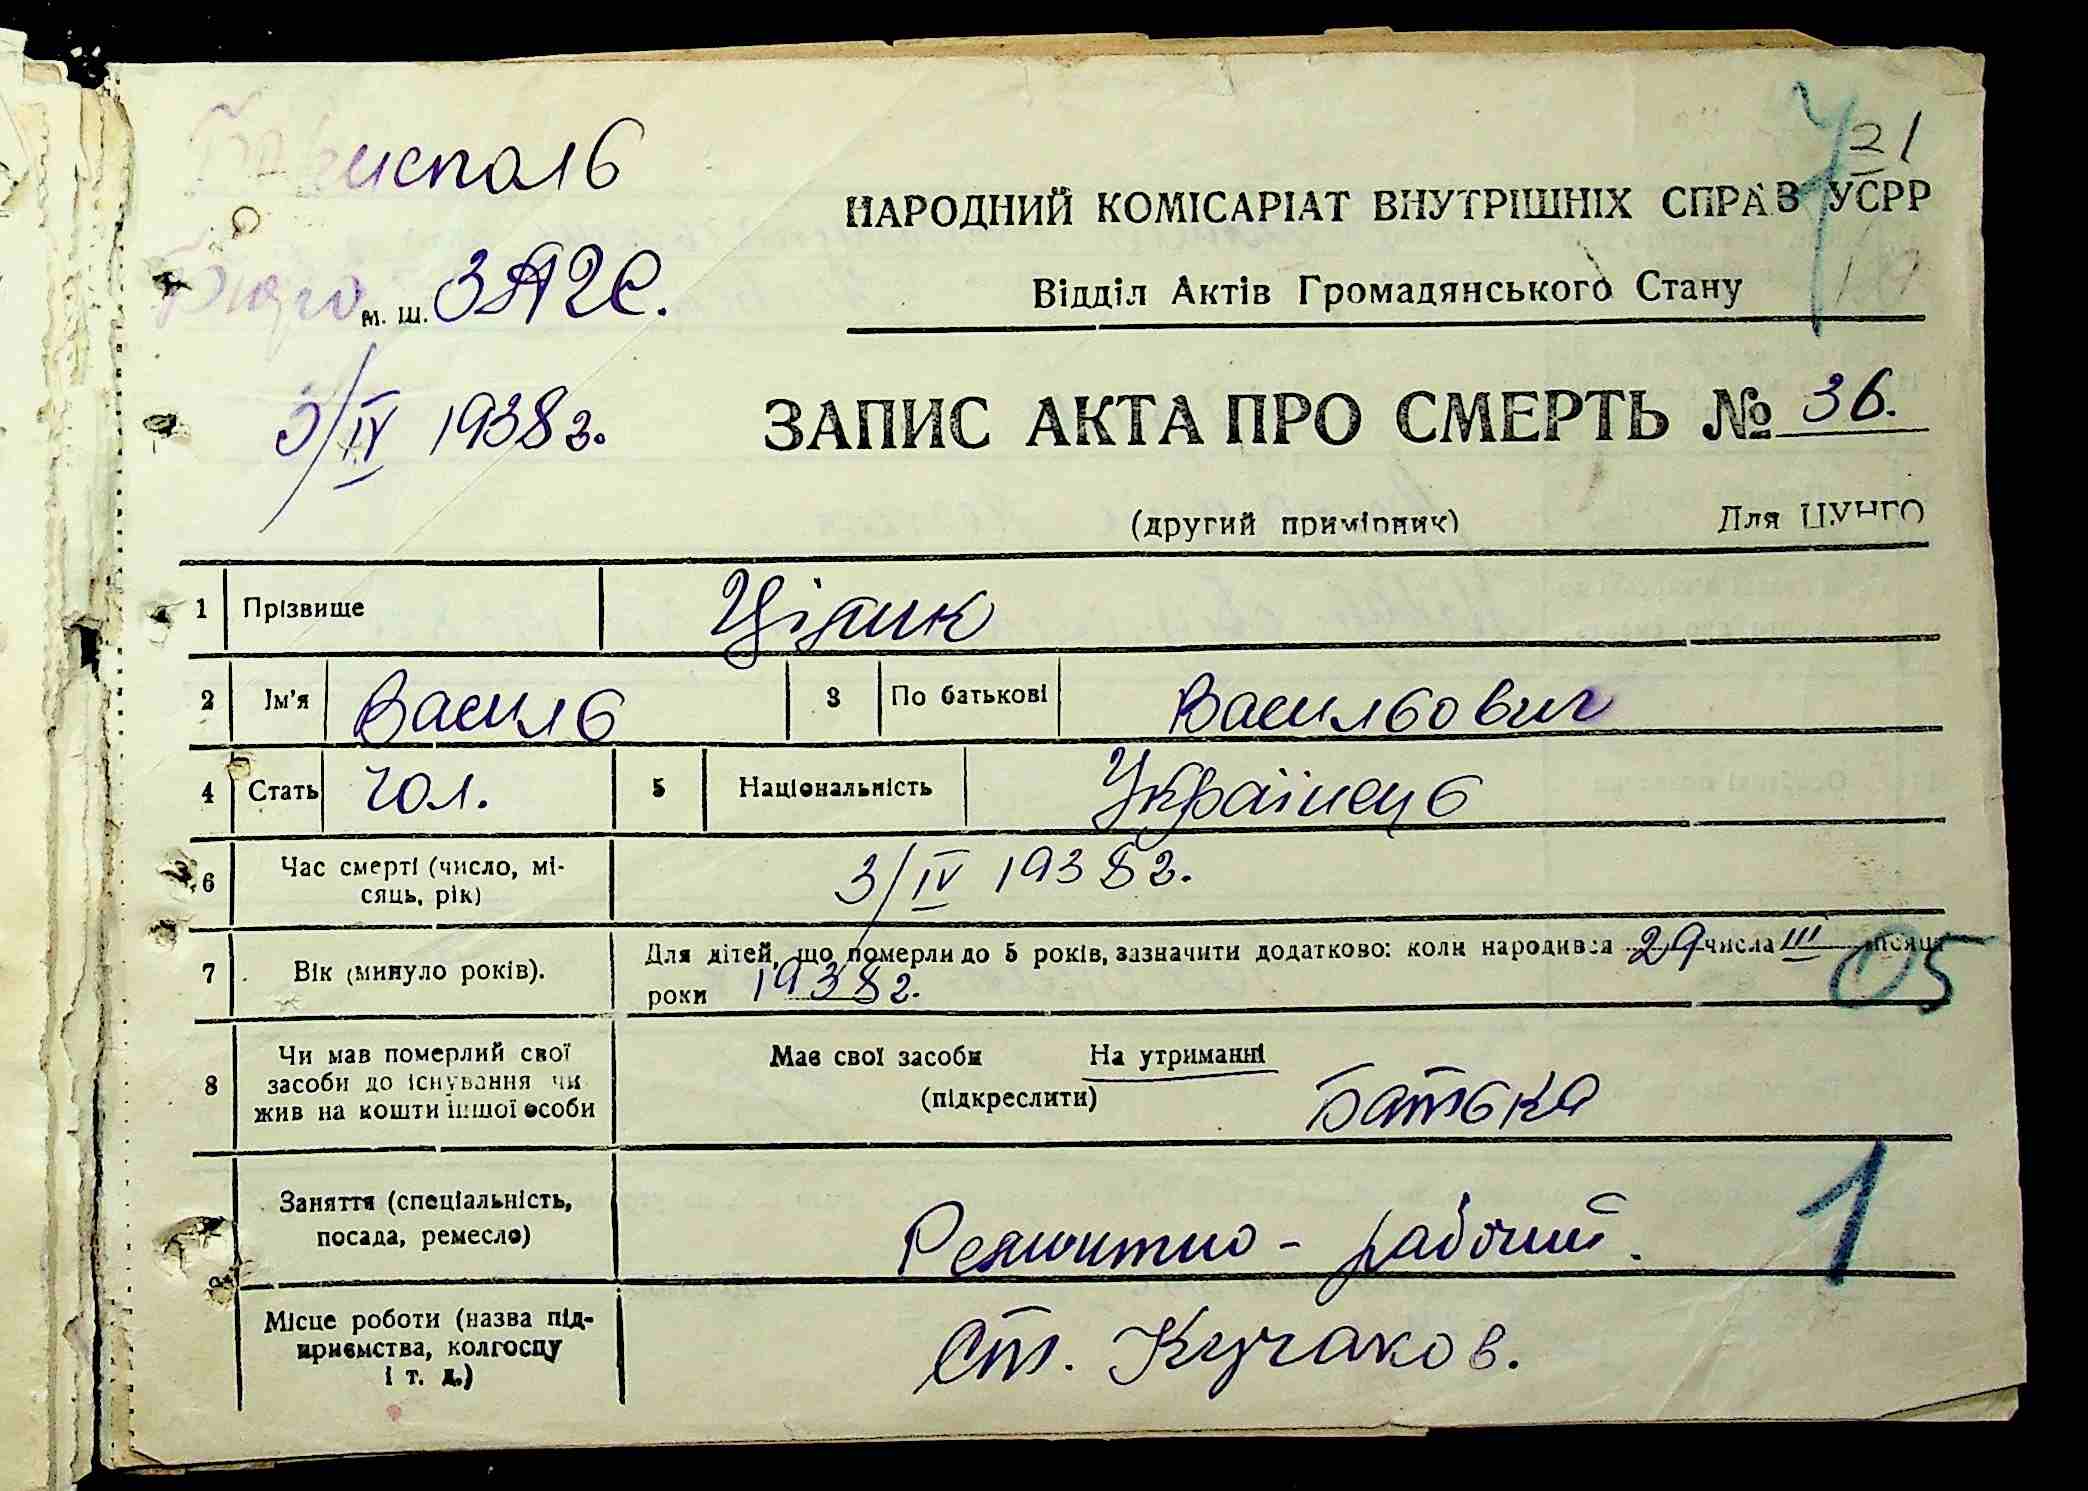 Бориспіль
21
НАРОДНИЙ КОМІСАРІАТ ВНУТРІШНІХ СПРАВ УСРР
Бюро м. ш. ЗАГС.
Відділ Актів Громадянського Стану
19
3/IV 1938 г.
ЗАПИС АКТА ПРО СМЕРТЬ № 36.
(другий примірник) Для ЦУНГО
1 Прізвище Ціпик
2 Ім'я Василь 3 По батькові Васильович
4 Стать чол. 5 Національність Українець
6 Час смерті (число, мі-
сяць, рік) 3/IV 1938 г.
7 Вік (минуло років). Для дітей, що померли до 5 років, зазначити додатково: коли народився 29 числа III місяця
роки 1938 г.
05
8 Чи мав померлий свої
засоби до існування чи
жив на кошти іншої особи
Має свої засоби На утриманні
(підкреслити) Батька
Заняття (спеціальність,
посада, ремесло) Ремонтно - рабочий.
1
Місце роботи (назва під-
приємства, колгоспу
і т. д.) Ст. Кучаков.